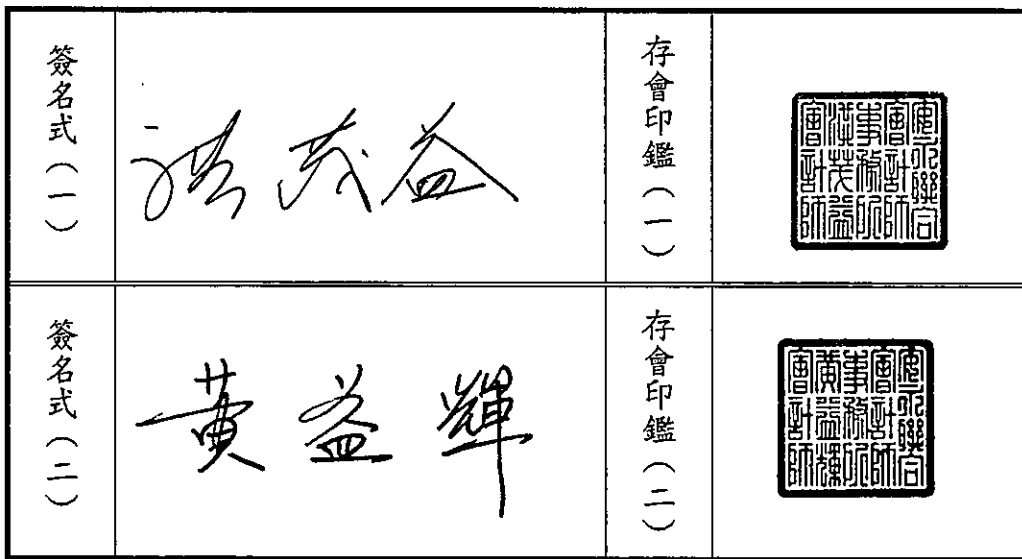 簽名式（一）
洪茂益
存會印鑑（一）
安永聯合
會計師
事務所
洪茂益
會計師
簽名式（二）
黃益輝
存會印鑑（二）
安永聯合
會計師
事務所
黃益輝
會計師